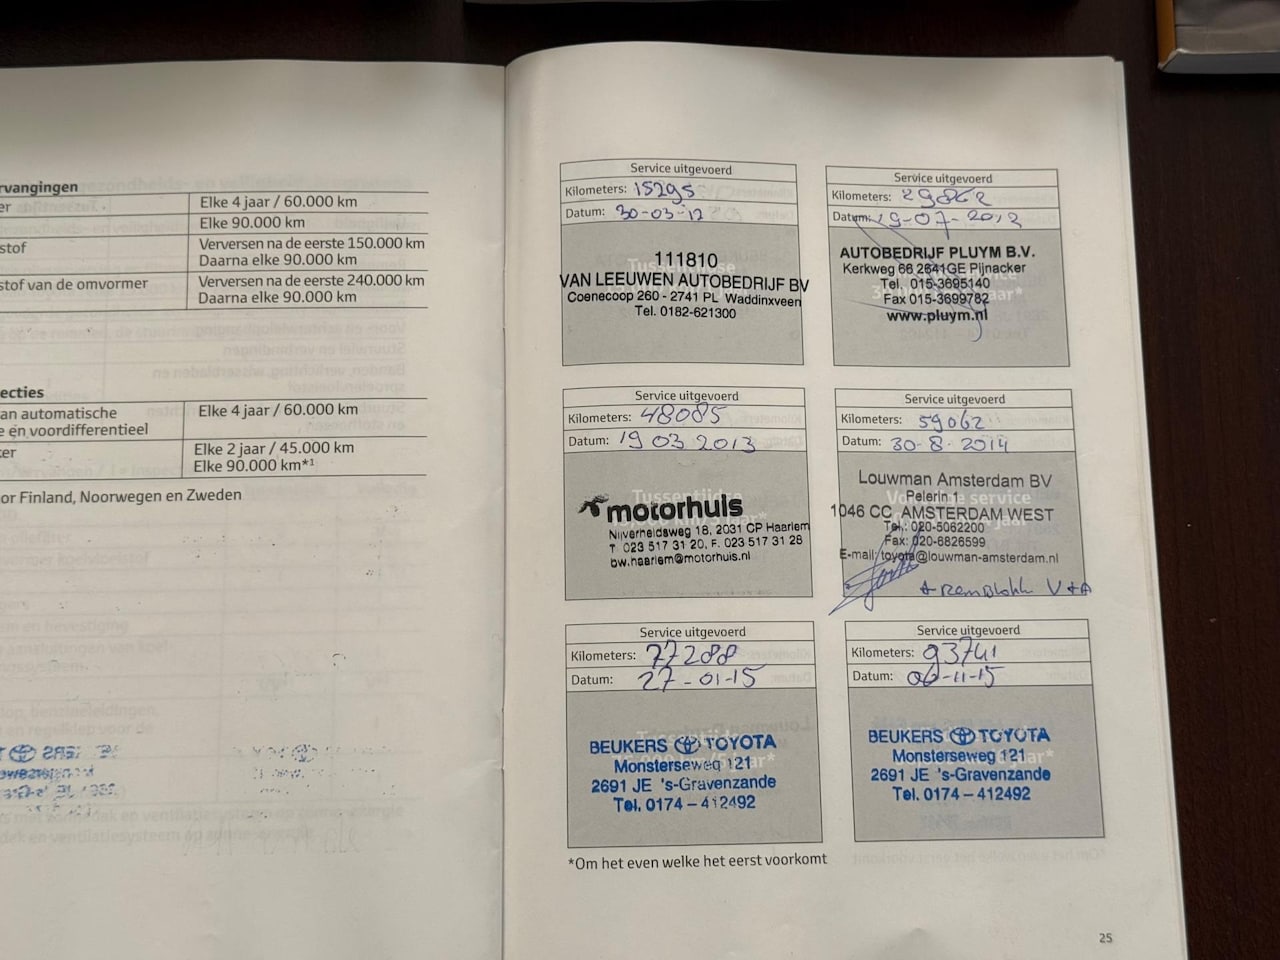 rvangingen
er
Elke 4 jaar / 60.000 km
Elke 90.000 km
stof
Verversen na de eerste 150.000 km
Daarna elke 90.000 km
stof van de omvormer
Verversen na de eerste 240.000 km
Daarna elke 90.000 km
ecties
an automatische
e en voordifferentieel
Elke 4 jaar / 60.000 km
ker
Elke 2 jaar / 45.000 km
Elke 90.000 km*1
or Finland, Noorwegen en Zweden
Service uitgevoerd
Kilometers: 15295
Datum: 30-03-12
111810
VAN LEEUWEN AUTOBEDRIJF BV
Coenecoop 260 - 2741 PL Waddinxveen
Tel. 0182-621300
Service uitgevoerd
Kilometers: 29862
Datum: 19-07-2012
AUTOBEDRIJF PLUYM B.V.
Kerkweg 66 2641GE Pijnacker
Tel. 015-3695140
Fax 015-3699782
www.pluym.nl
Service uitgevoerd
Kilometers: 48085
Datum: 19 03 2013
Tussentijdse
motorhuis
Nijverheidsweg 18, 2031 CP Haarlem
T. 023 517 31 20, F. 023 517 31 28
bw.haarlem@motorhuis.nl
Service uitgevoerd
Kilometers: 59062
Datum: 30-8-2014
Louwman Amsterdam BV
Pelerin 1
1046 CC AMSTERDAM WEST
Tel.: 020-5062200
Fax: 020-6826599
E-mail: toyota@louwman-amsterdam.nl
V+A
Service uitgevoerd
Kilometers: 77288
Datum: 27-01-15
BEUKERS TOYOTA
Monsterseweg 121
2691 JE 's-Gravenzande
Tel. 0174 – 412492
Service uitgevoerd
Kilometers: 93741
Datum: 06-11-15
BEUKERS TOYOTA
Monsterseweg 121
2691 JE 's-Gravenzande
Tel. 0174 – 412492
*Om het even welke het eerst voorkomt
25